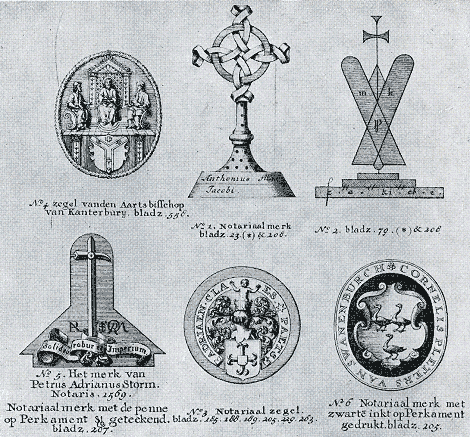 No 4 zegel vanden Aartsbisschop
van Kanterbury. bladz. 556.
Anthonius
Jacobi.
No 1. Notariaal merk
bladz. 23. (*) & 206.
m k
P
No 2. bladz. 79. (*) & 206
Solidae robur Imperium
No 5. Het merk van
Petrus Adrianus Storm.
Notaris. 1569.
Notariaal merk met de penne
op Perkament geteekend.
bladz. 207.
ADRIAEN. CLAES
No 3 Notariaal zegel.
bladz. 185. 188. 189. 205. 229. 263.
CORNELIS PIETERS VAN SWANENBURCH
No 6 Notariaal merk met
zwarte inkt op Perkament
gedrukt. bladz. 205.